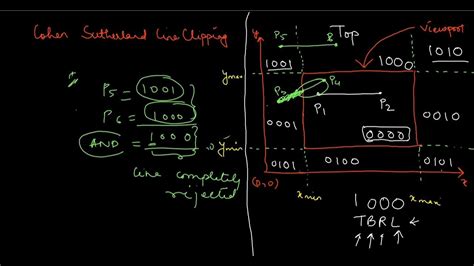 Cohen Sutherland Line Clipping
P5 = 1001
P6 = 1000
AND = 1000
Line completely
rejected
y
P5
Top
viewport
1001
1000
1010
ymax
P3
P4
P1
P2
0001
0000
0010
ymin
0101
0100
0101
(0,0)
xmin
xmax
x
1000
TBRL